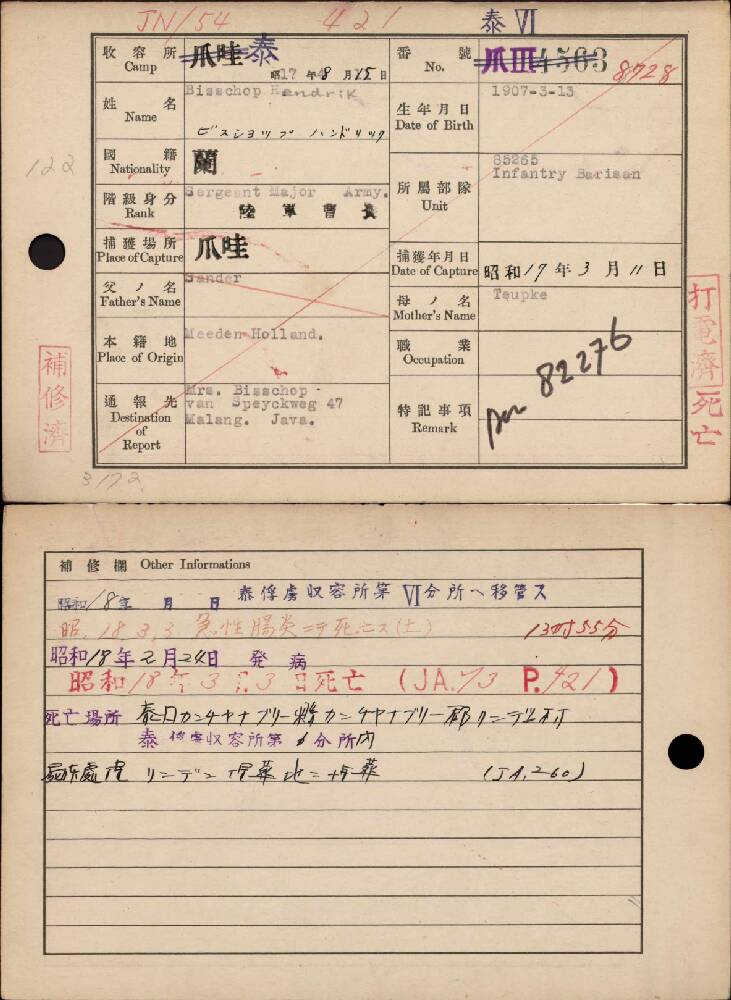 JN/54 421 泰VI
收容所 Camp 爪哇 泰
昭17年8月15日
番號 No. 爪III4563 8728
姓名 Name Bisschop Hendrik
ビスショップ ハンドリック
生年月日 Date of Birth 1907-3-13
122
國籍 Nationality 蘭
階級身分 Rank Sergeant Major Army.
陸軍曹長
所屬部隊 Unit 85265
Infantry Barisan
捕獲場所 Place of Capture 爪哇
捕獲年月日 Date of Capture 昭和17年3月11日
父ノ名 Father's Name Sander
母ノ名 Mother's Name Teupke
本籍地 Place of Origin Meeden-Holland.
職業 Occupation
通報先 Destination of Report
Mrs. Bisschop-
van Speyckweg 47
Malang. Java.
特記事項 Remark
82276
補修濟
打電濟
死亡
3172
補修欄 Other Informations
昭和18年 月 日 泰俘虜収容所第VI分所ヘ移管ス
昭.18.3.3 急性腸炎ニテ死亡ス(土) 13時55分
昭和18年2月24日 発病
昭和18年3月3日死亡 (JA.73 P.421)
死亡場所 泰国カンチヤナブリー縣カンチヤナブリー郡リンデン村
泰俘虜収容所第 分所内
リンデン 葬地ニ 葬 (JA.260)